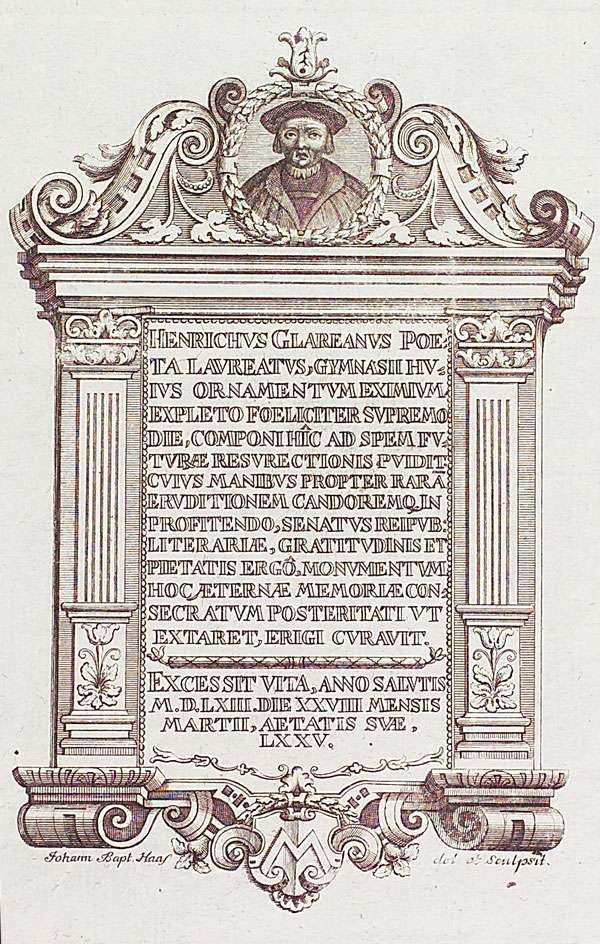 HENRICHVS GLAREANVS POE-
TA LAVREATVS, GYMNASII HV-
IVS ORNAMENTVM EXIMIVM,
EXPLETO FOELICITER SVPREMO
DIE, COMPONI HÎC AD SPEM FV-
TVRÆ RESVRECTIONIS PVIDIT
CVIVS MANIBVS PROPTER RARĀ
ERVDITIONEM CANDOREMQ, IN
PROFITENDO, SENATVS REIPVB:
LITERARIÆ, GRATITVDINIS ET
PIETATIS ERGÔ, MONVMENTVM
HOC ÆTERNÆ MEMORIÆ CON-
SECRATVM POSTERITATI VT
EXTARET, ERIGI CVRAVIT.
EXCESSIT VITA, ANNO SALVTIS
M.D.LXIII. DIE XXVIII MENSIS
MARTII, AETATIS SVÆ,
LXXV.
M
Johann Bapt. Haas del et Sculpsit.